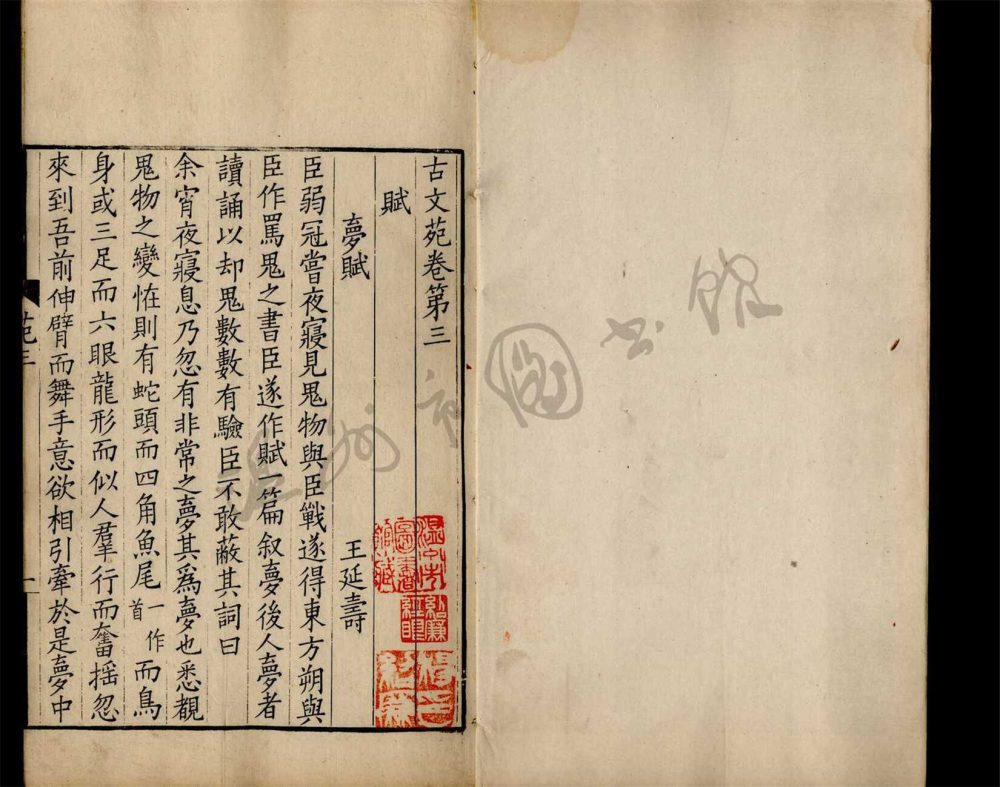 古文苑卷第三
賦
夢賦 王延壽
臣弱冠嘗夜寢見鬼物與臣戰遂得東方朔與
臣作罵鬼之書臣遂作賦一篇叙夢後人夢者
讀誦以却鬼數數有驗臣不敢蔽其詞曰
余宵夜寢息乃忽有非常之夢其爲夢也悉覩
鬼物之變恠則有蛇頭而四角魚尾一作首而鳥
身或三足而六眼龍形而似人羣行而奮揺忽
來到吾前伸臂而舞手意欲相引牽於是夢中
苑三
一
溫州市圖書館藏
溫州市圖書館